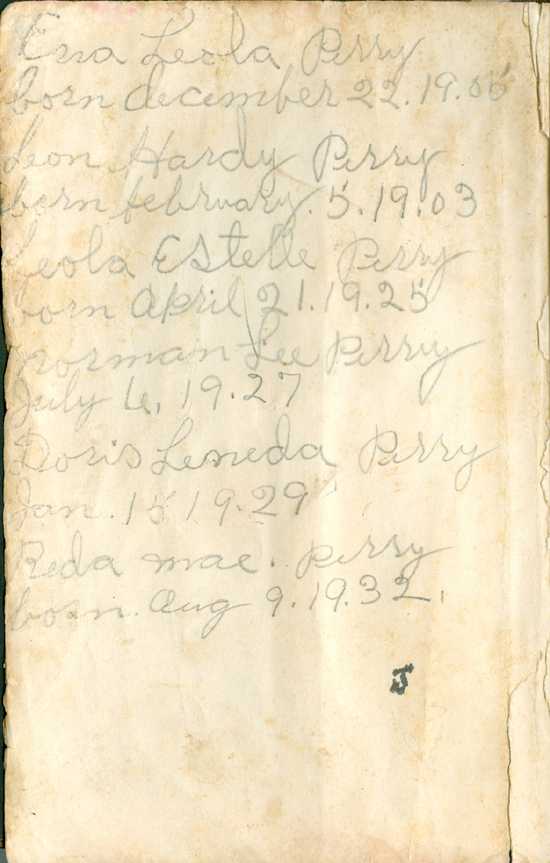 Ena Leola Perry
born december 22.19.05
Leon Hardy Perry
born february. 5.19.03
Leola Estelle Perry
born April 21.19.25
norman Lee Perry
July 6, 19.27
Doris Leneda Perry
Jan. 15 19.29
Reda mae. perry
born. Aug 9.19.32.
J